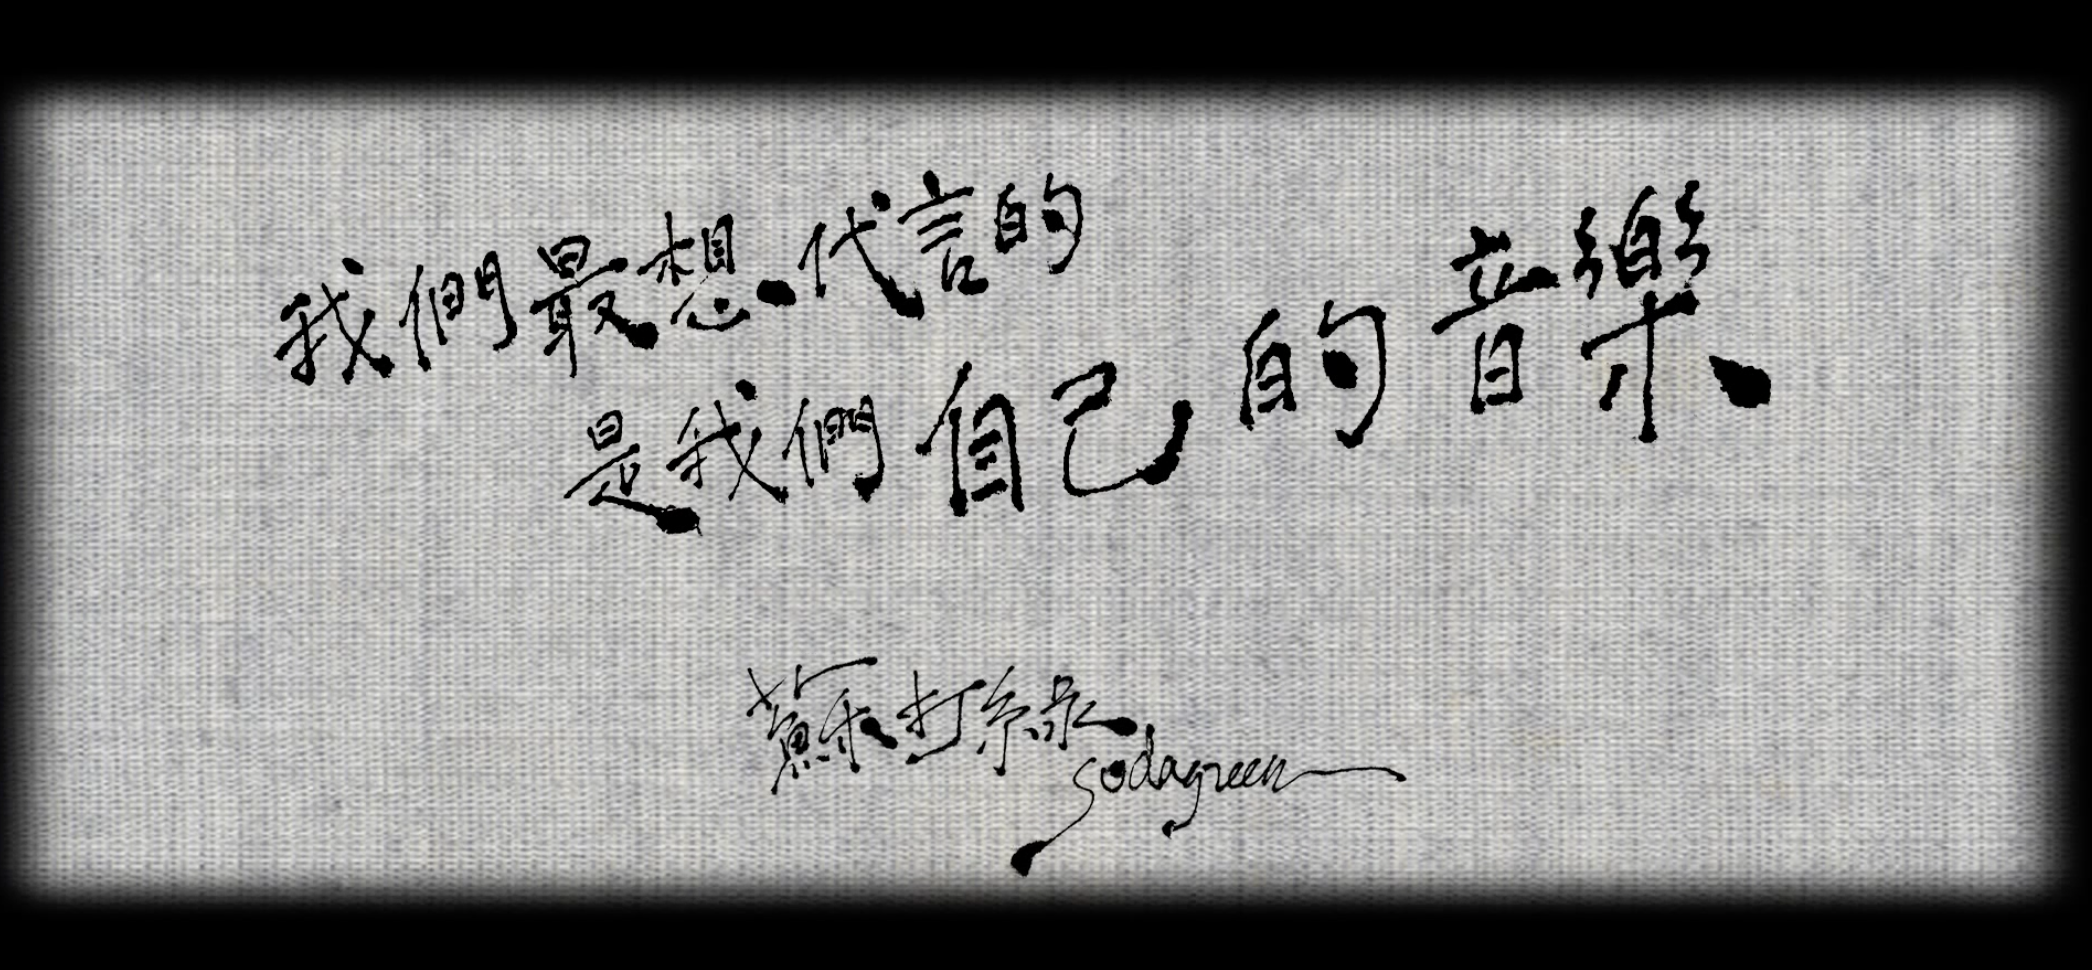 我們最想代言的
是我們自己的音樂
蘇打綠
sodagreen